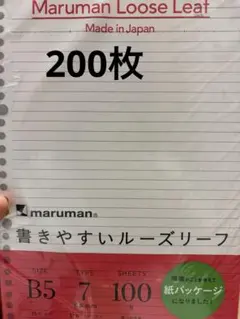 Maruman Loose Leaf
Made in Japan
200枚
maruman®
書きやすいルーズリーフ
SIZE TYPE SHEETS
B5 7 100
紙パッケージ
になりました!